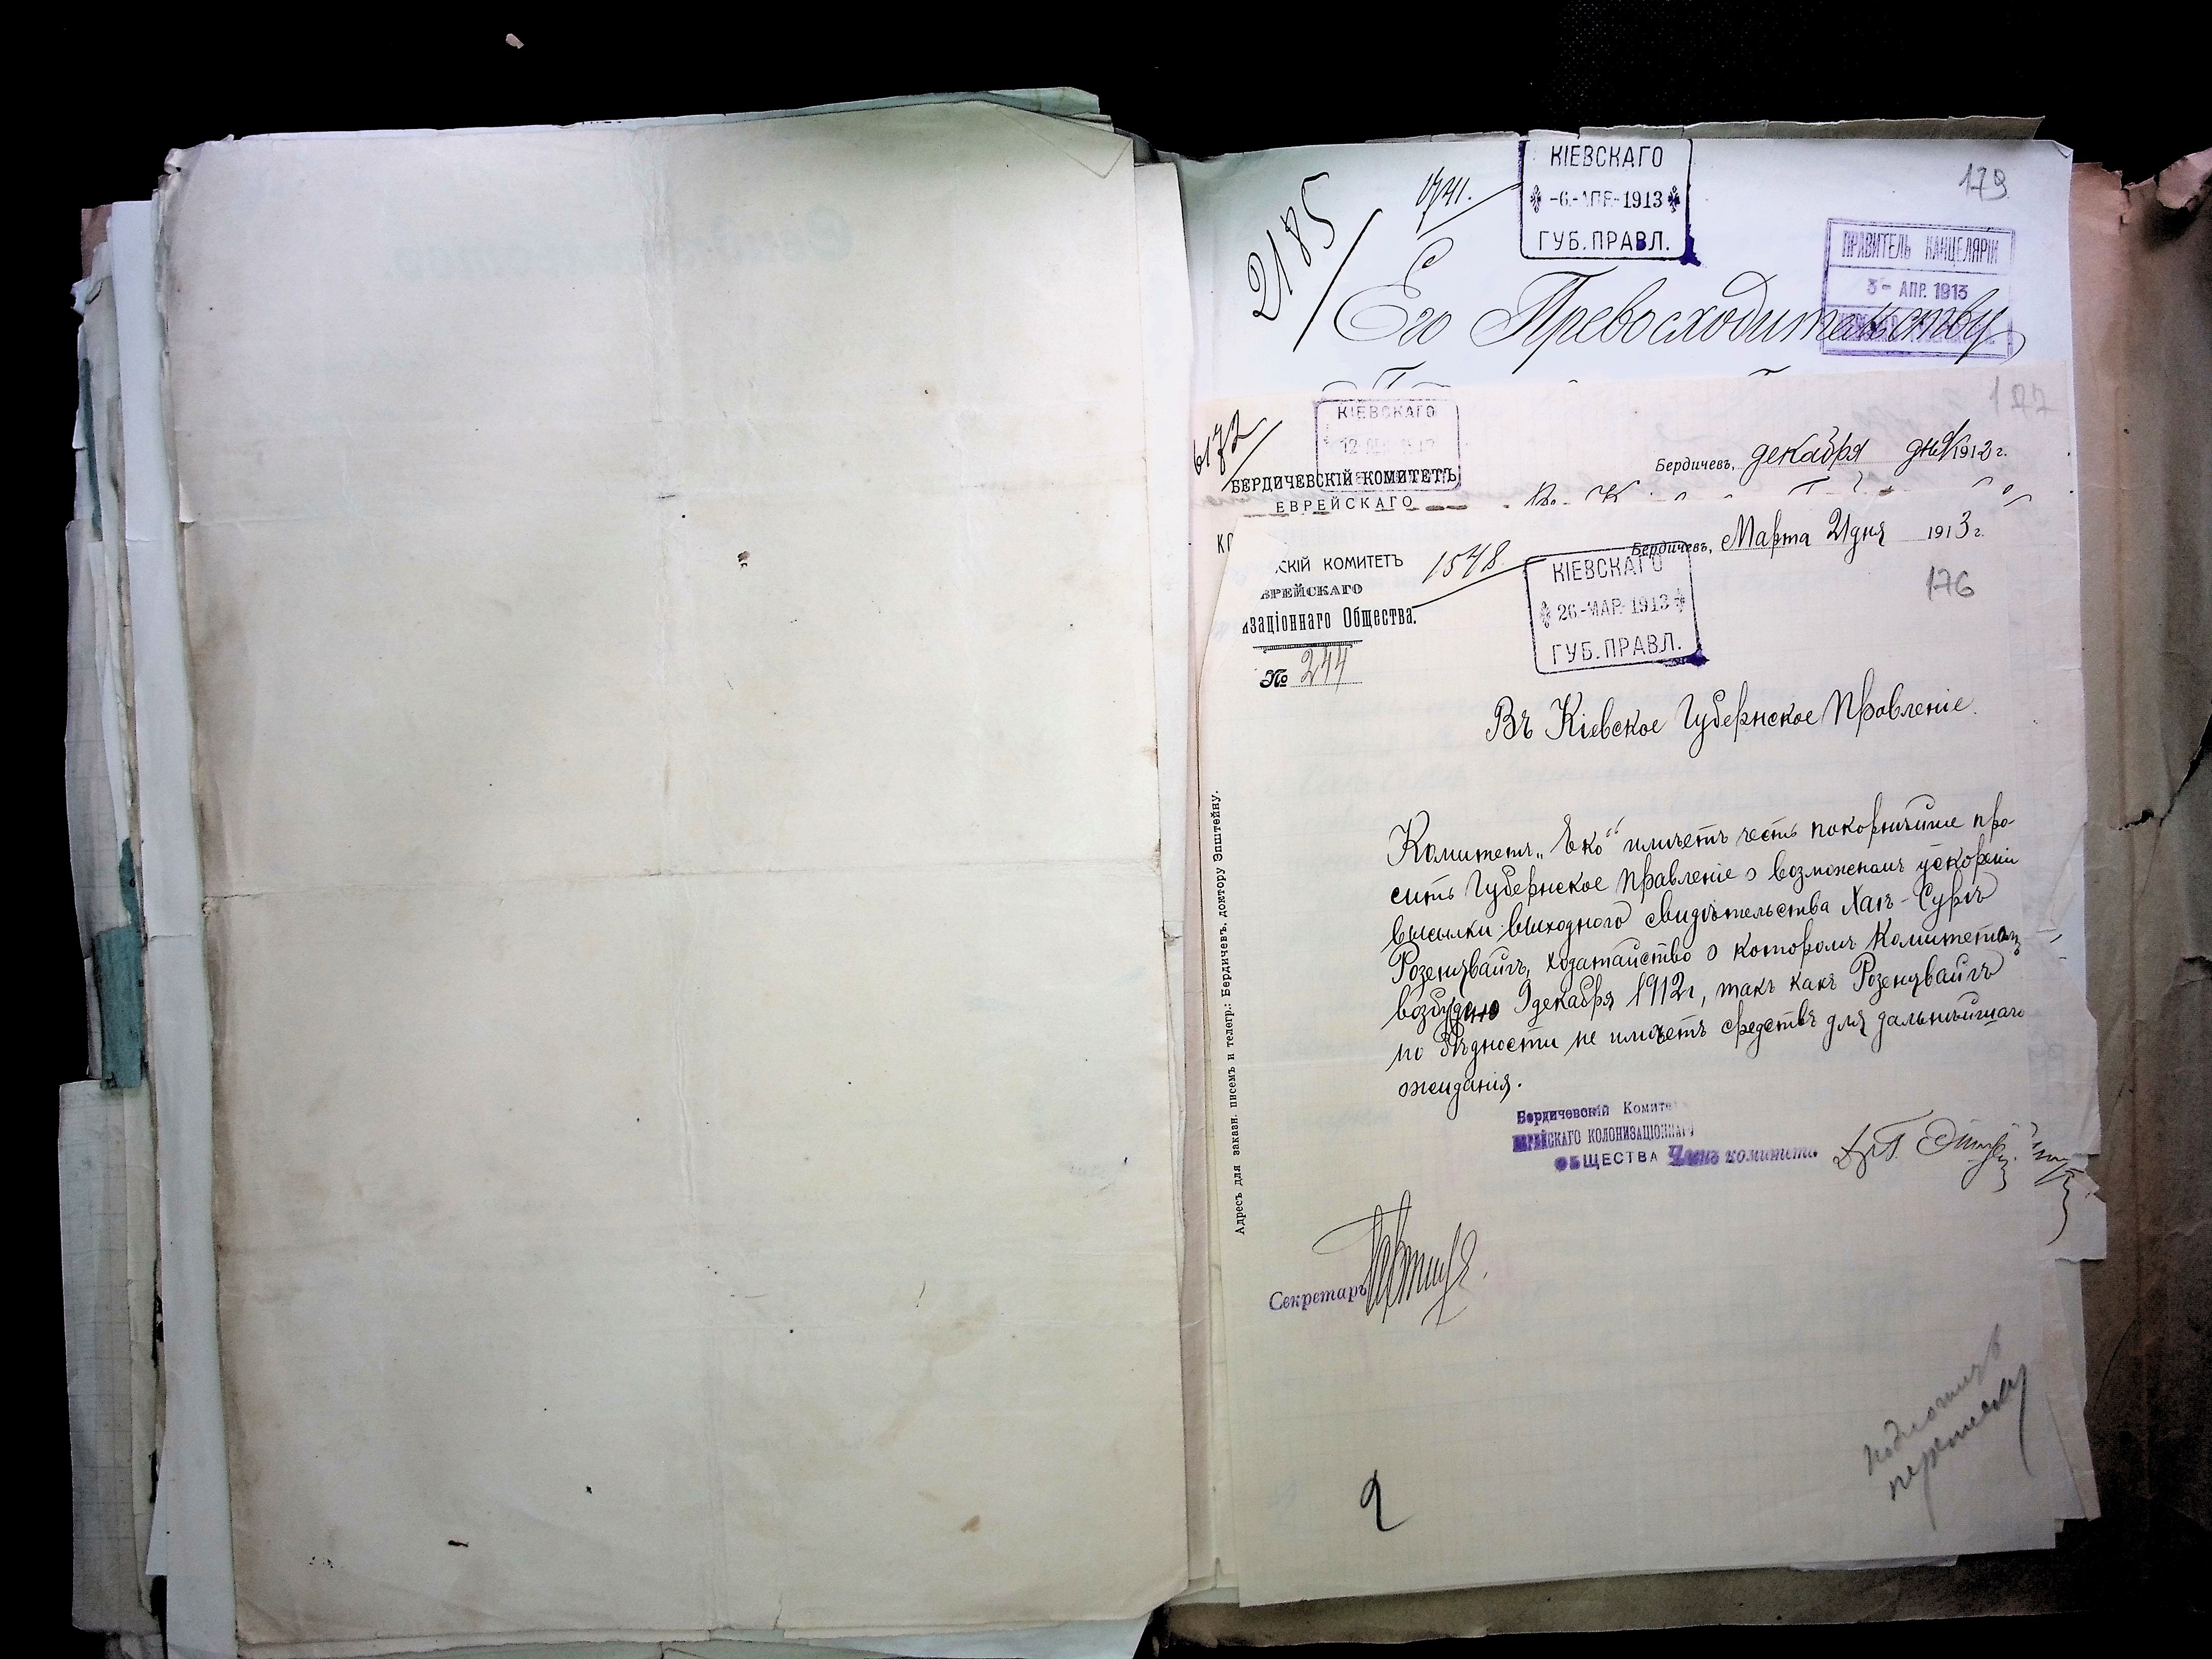 179
2185
1741.
КІЕВСКАГО
-6.-АПР.-1913
ГУБ. ПРАВЛ.
ПРАВИТЕЛЬ КАНЦЕЛЯРІИ
3- АПР. 1913
Его Превосходительству
6172
КІЕВСКАГО
БЕРДИЧЕВСКІЙ КОМИТЕТЪ
ЕВРЕЙСКАГО
Бердичевъ, декабря 9 дня 1912 г.
СКІЙ КОМИТЕТЪ
ВРЕЙСКАГО
изаціоннаго Общества.
№ 244
1548.
Бердичевъ, Марта 21 дня 1913 г.
КІЕВСКАГО
26.-МАР.-1913
ГУБ. ПРАВЛ.
176
Въ Кіевское Губернское Правленіе.
Комитетъ „Еко“ имѣетъ честь покорнѣйше про-
сить Губернское Правленіе о возможномъ ускореніи
высылки выходного свидѣтельства Хаѣ-Сурѣ
Розенцвайгъ, ходатайство о которомъ Комитетомъ
возбуждено 9 декабря 1912 г, такъ какъ Розенцвайгъ
по бѣдности не имѣетъ средствъ для дальнѣйшаго
ожиданія.
Бердичевскій Комите
ЕВРЕЙСКАГО КОЛОНИЗАЦІОННАГО
ОБЩЕСТВА
Членъ комитета.
Секретарь
Адресъ для заказн. писемъ и телегр.: Бердичевъ, доктору Эпштейну.
подложить
переписку